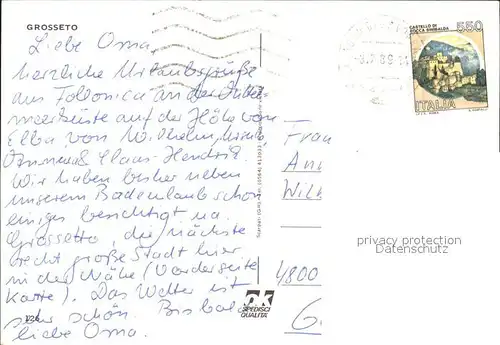 GROSSETO
Liebe Oma,
herzliche Urlaubsgrüße
aus Follonica an der Mittel-
meerküste auf der Höhe von
Elba, von Wilhelm,
Claus-Hendrik.
Wir haben bisher neben
unserem Badeurlaub schon
einiges besichtigt u.a.
Grosseto, die nächste
recht große Stadt hier
in der Nähe (Vorderseite
Karte). Das Wetter ist
sehr schön. Bis bald
liebe Oma.
126
CASTELLO DI
ROCCA SINIBALDA
550
ITALIA
Frau
An
Wilh
4800
G
OK
SPEDISCI
QUALITÀ
privacy protection
Datenschutz